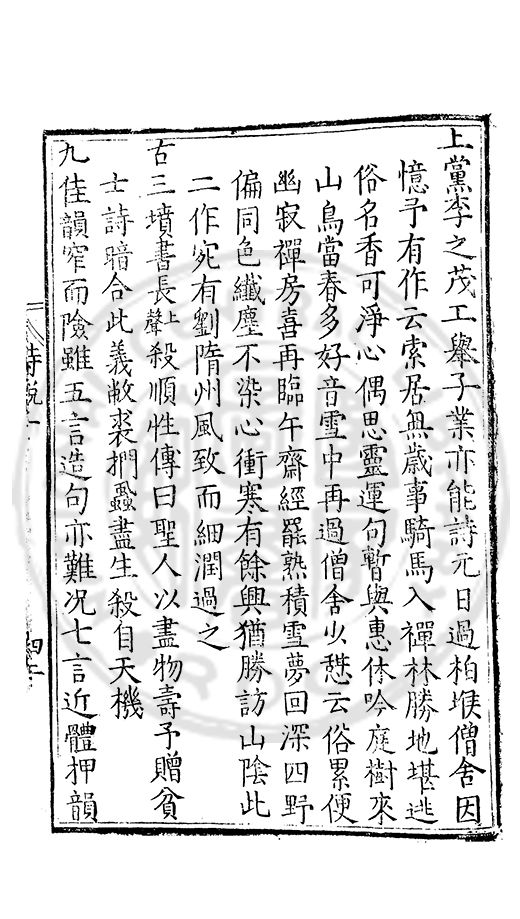 上黨李之茂工舉子業亦能詩元日過柏堠僧舍因
憶予有作云索居無歲事騎馬入禪林勝地堪逃
俗名香可淨心偶思靈運句暫與惠休吟庭樹來
山鳥當春多好音雪中再過僧舍少憇云俗累便
幽寂禪房喜再臨午齋經罷熟積雪夢回深四野
偏同色纖塵不染心衝寒有餘興猶勝訪山陰此
二作宛有劉隋州風致而細潤過之
古三墳書長上聲殺順性傳曰聖人以盡物壽予贈貧
士詩暗合此義敝裘捫蝨盡生殺自天機
九佳韻窄而險雖五言造句亦難況七言近體押韻